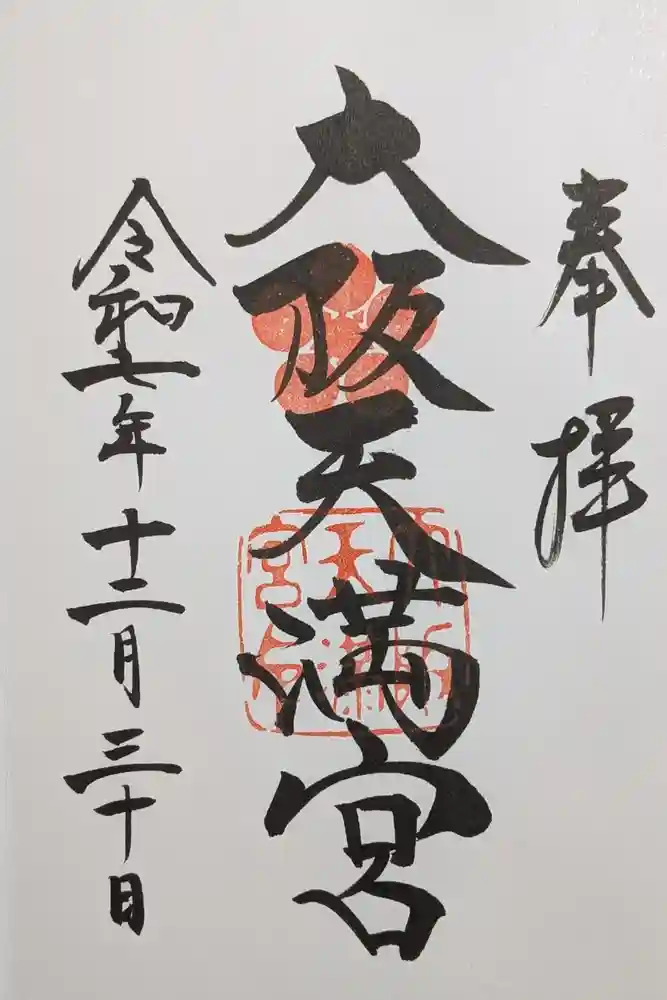 奉拝
大阪天満宮
令和七年十二月三十日